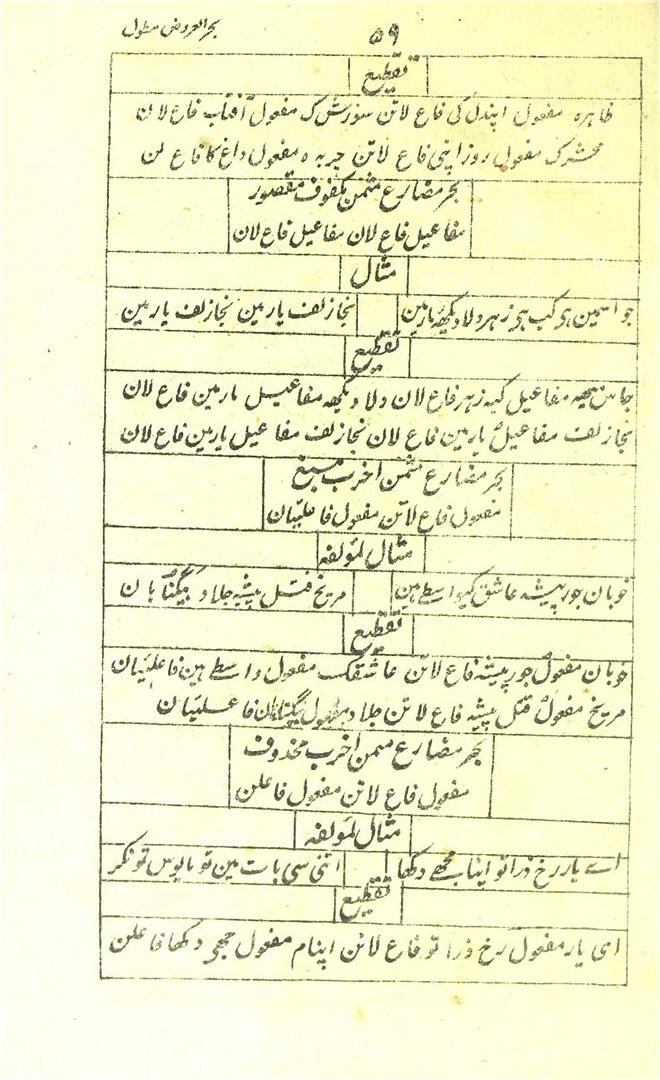 بحر العروض مطول
۵۹
تقطیع
ظاہرہ مفعول اپندل کی فاع لاتن سوزرش ک مفعول آفتاب فاع لان
محشرک مفعول روز اپنی فاع لاتن جربہ ہ مفعول داغ کا فاع لن
بحر مضارع مثمن مکفوف مقصور
مفاعیل فاع لان مفاعیل فاع لان
مثال
جو اسمین ہی کب ہی زہرہ دلا دیکھہ مارمین نجاز لف یارمین نجاز لف یارمین
تقطیع
مفاعیل زہر فاع لان دلا دیکھہ مفاعیل مارمین فاع لان
نجاز لف مفاعیل یارمین فاع لان نجاز لف مفاعیل یارمین فاع لان
بحر مضارع مثمن اخرب مسبغ
مفعول فاع لاتن مفعول فاعلیّان
مثال لمؤلفہ
خوبان جور پیشہ عاشق کیواسطے ہین مریخ قتل پیشہ جلاد بیگناہان
تقطیع
خوبان مفعول جور پیشہ فاع لاتن عاشقک مفعول واسطے ہین فاعلیّان
مریخ مفعولُ قتل پیشہ فاع لاتن جلاد مفعول بیگناہان فاعلیّان
بحر مضارع مثمن اخرب محذوف
مفعول فاع لاتن مفعول فاعلن
مثال لمؤلفہ
اے یار رخ ذرا تو اپنا مجھے دکھا اتنی سی بات مین تو مایوس تو نکر
تقطیع
ای یار مفعول رخ ذرا تو فاع لاتن اپنام مفعول جھی دکھا فاعلن